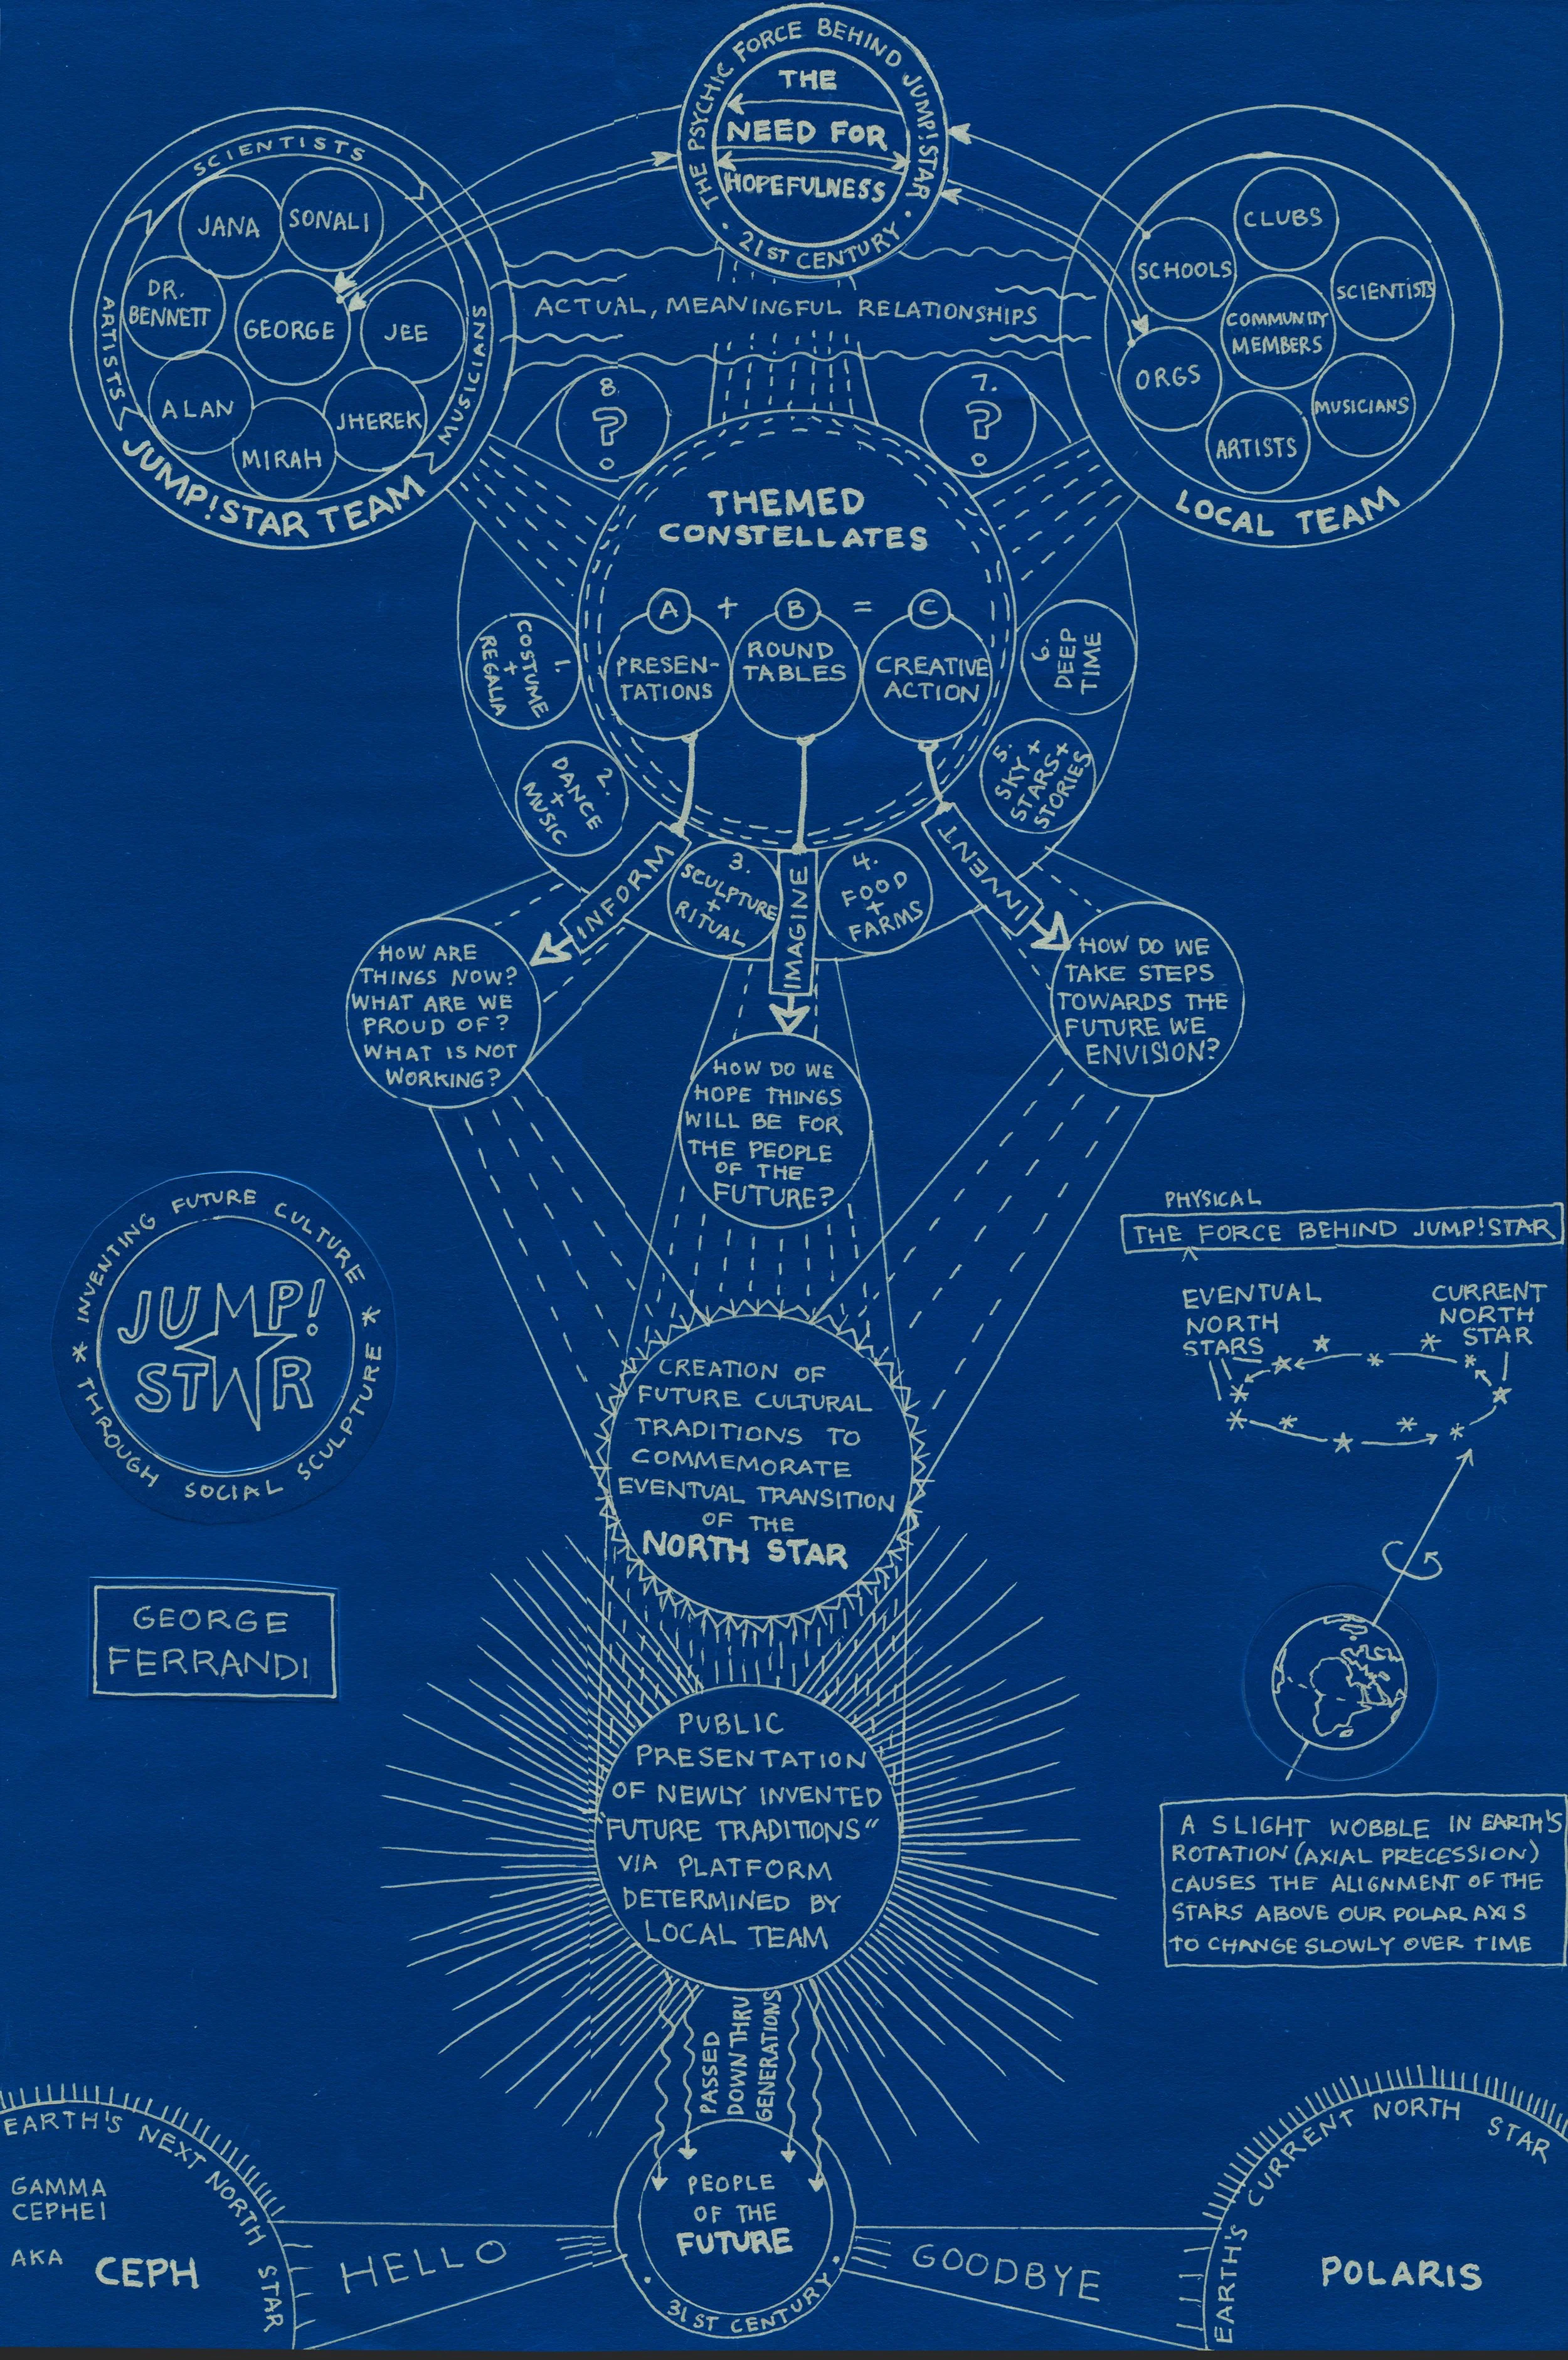 THE PSYCHIC FORCE BEHIND JUMP!STAR
• 21ST CENTURY •
THE
NEED FOR
HOPEFULNESS
SCIENTISTS
ARTISTS
MUSICIANS
JANA
SONALI
DR.
BENNETT
GEORGE
JEE
ALAN
MIRAH
JHEREK
JUMP!STAR TEAM
ACTUAL, MEANINGFUL RELATIONSHIPS
CLUBS
SCHOOLS
SCIENTISTS
COMMUNITY
MEMBERS
ORGS
MUSICIANS
ARTISTS
LOCAL TEAM
8.
?
7.
?
THEMED
CONSTELLATES
A + B = C
PRESEN-
TATIONS
ROUND
TABLES
CREATIVE
ACTION
1.
COSTUME
+
REGALIA
2.
DANCE
+
MUSIC
3.
SCULPTURE
+
RITUAL
4.
FOOD
+
FARMS
5.
SKY +
STARS +
STORIES
6.
DEEP
TIME
INFORM
IMAGINE
INVENT
HOW ARE
THINGS NOW?
WHAT ARE WE
PROUD OF?
WHAT IS NOT
WORKING?
HOW DO WE
HOPE THINGS
WILL BE FOR
THE PEOPLE
OF THE
FUTURE?
HOW DO WE
TAKE STEPS
TOWARDS THE
FUTURE WE
ENVISION?
* INVENTING FUTURE CULTURE *
THROUGH SOCIAL SCULPTURE
JUMP!
STAR
GEORGE
FERRANDI
PHYSICAL
THE ^ FORCE BEHIND JUMP!STAR
EVENTUAL
NORTH
STARS
CURRENT
NORTH
STAR
A SLIGHT WOBBLE IN EARTH'S
ROTATION (AXIAL PRECESSION)
CAUSES THE ALIGNMENT OF THE
STARS ABOVE OUR POLAR AXIS
TO CHANGE SLOWLY OVER TIME
CREATION OF
FUTURE CULTURAL
TRADITIONS TO
COMMEMORATE
EVENTUAL TRANSITION
OF THE
NORTH STAR
PUBLIC
PRESENTATION
OF NEWLY INVENTED
"FUTURE TRADITIONS"
VIA PLATFORM
DETERMINED BY
LOCAL TEAM
PASSED
DOWN THRU
GENERATIONS
PEOPLE
OF THE
FUTURE
• 31ST CENTURY •
EARTH'S NEXT NORTH STAR
GAMMA
CEPHEI
AKA CEPH
HELLO
GOODBYE
EARTH'S CURRENT NORTH STAR
POLARIS